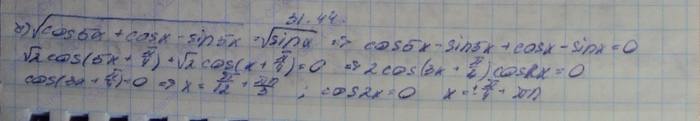 31.44.
г) √(cos5x + cosx - sin5x) = √(sinx) => cos5x - sin5x + cosx - sinx = 0
√2 cos(5x + π/4) + √2 cos(x + π/4) = 0 => 2 cos(3x + π/4) cos2x = 0
cos(3x + π/4) = 0 => x = π/12 + πn/3 ; cos2x = 0 x = ±π/4 + πn